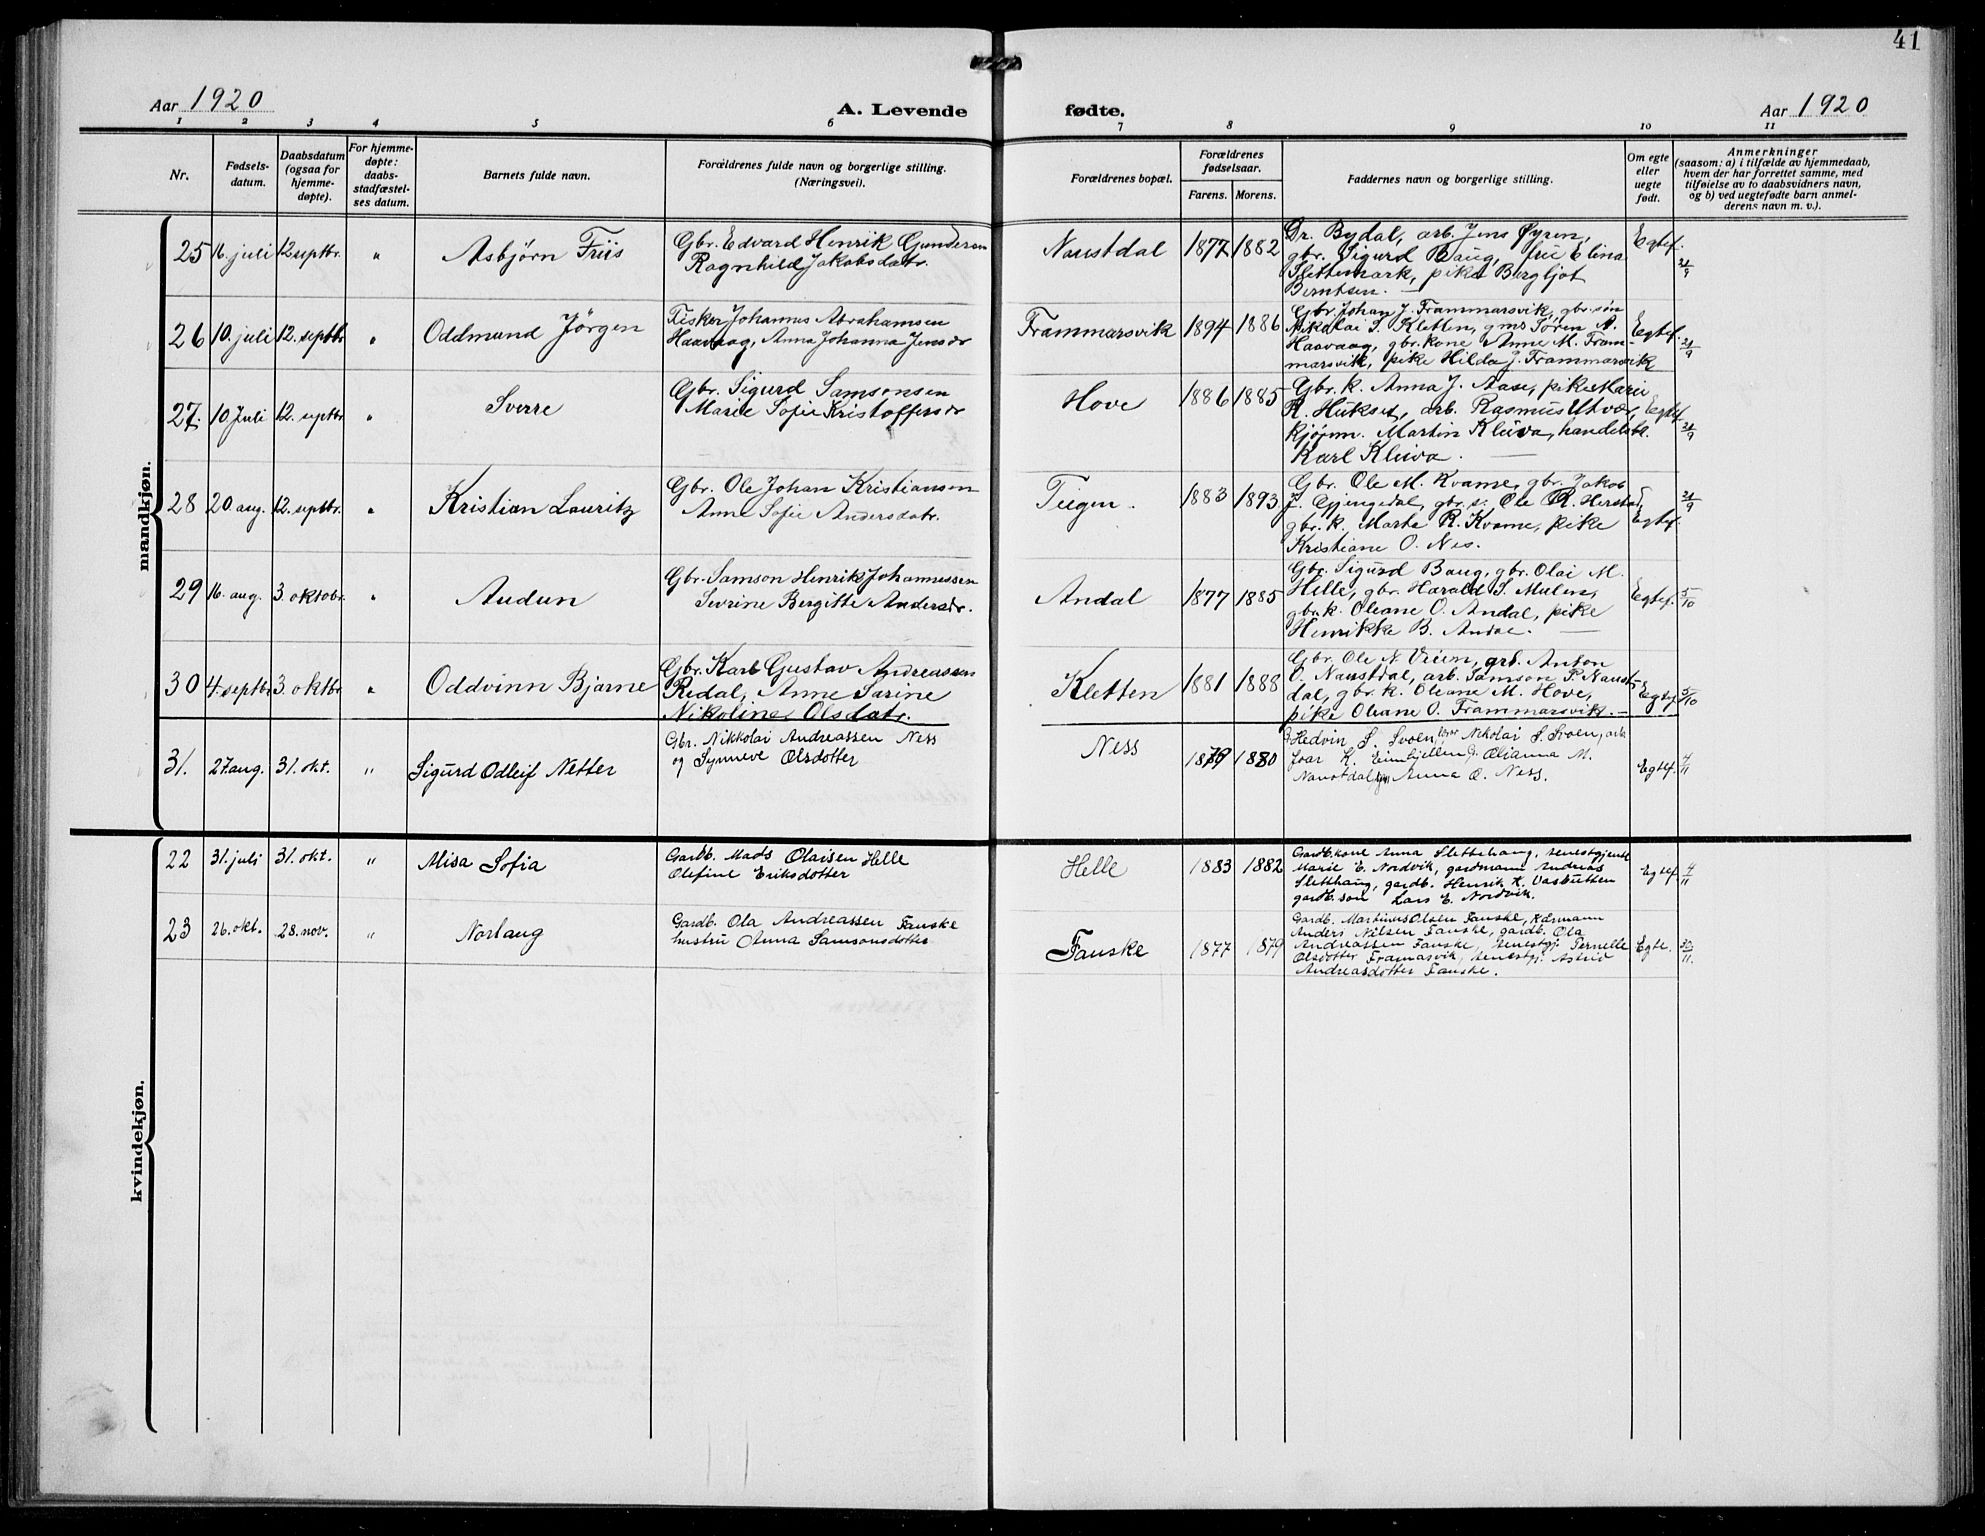 41
Aar 1920
A. Levende fødte.
Aar 1920
1 2 3 4 5 6 7 8 9 10 11
Nr.
Fødsels-
datum.
Daabsdatum
(ogsaa for
hjemme-
døpte).
For hjemme-
døpte:
daabs-
stadfæstel-
ses datum.
Barnets fulde navn.
Forældrenes fulde navn og borgerlige stilling.
(Næringsvei).
Forældrenes bopæl.
Forældrenes
fødselsaar.
Farens. Morens.
Faddernes navn og borgerlige stilling.
Om egte
eller
uegte
født.
Anmerkninger
(saasom: a) i tilfælde av hjemmedaab,
hvem der har forrettet samme, med
tilføielse av to daabsvidners navn,
og b) ved uegtefødte barn anmel-
derens navn m. v.).
mandkjøn.
25 16. juli 12 septbr. " Asbjørn Friis
Gbr. Edvard Henrik Gundersen
Ragnhild Jakobsdatr.
Naustdal 1877 1882
Dr. Bydal, arb. Jens Øyren,
gbr. Sigurd Baug, frü Elina
Slettemark, pike Bergljot
Berntsen. —
Egtef. 21/9
26 10. juli 12. septbr " Oddmund Jörgen
Fisker Johannes Abrahamsen
Haavaag, Anna Johanna Jensdr
Frammarsvik 1894 1886
Gbr. Johan J. Frammarsvik, gbr. søn
Nikolai S. Kletten, gms Sören A.
Haavaag, gbr. kone Anne M. Fram-
marsvik, pike Hilda J. Frammarsvik
Egtef. 21/9
27. 10 Juli 12. septbr " Sverre
Gbr. Sigurd Samsonsen
Marie Sofie Kristoffersdr
Hove 1886 1885
Gbr. k. Anna J. Aase, pike Marie
R. Hukset, arb. Rasmus Utvær,
kjøpm. Martin Kleiva, handelsbt.
Karl Kleiva. —
Egtef. 21/9
28 20 aug. 12. septbr " Kristian Lauritz
Gbr. Ole Johan Kristiansen
Anne Sofie Andersdatr.
Teigen. 1883 1893
Gbr. Ole M. Kvame, gbr. Jakob
J. Gjengedal, gbr. s. Ole R. Herstad,
gbr. k. Marta R. Kvame, pike
Kristiane O. Nes.
Egtef. 21/9
29 16. aug. 3 oktobr. " Audun
Gbr. Samson Henrik Johannessen
Sevrine Bergitte Andersdr.
Andal 1877 1885
Gbr. Sigurd Baug, gbr. Olai M.
Helle, gbr. Harald S. Mulen,
gbr. k. Oleane O. Andal, pike
Henrikke B. Andal. —
Egtef. 5/10
30 4 septbr 3. oktbr " Oddvinn Bjarne
Gbr. Karl Gustav Andreassen
Redal, Anne Sarine
Nikoline Olsdatr.
Kletten 1881 1888
Gbr. Ole N. Vieen, arb. Anton
O. Naustdal, arb. Samson P. Naust-
dal, gbr. k. Oleane M. Hove,
pike Oleane O. Frammarsvik. —
Egteg 5/10
31. 27. aug. 31. okt. " Sigurd Odleif Netter
Gbr. Nikkolai Andreassen Ness
og Synneve Olsdotter
Ness 1879 1880
Hedvin S. Svoen, Nikolai S. Svoen, arb
Ivar K. Eimhjellen, Olianna M.
Naustdal, Anna O. Ness.
Egtef. 4/11
kvindekjøn.
22 31. juli 31. okt. " Misa Sofia
Gardb. Mads Olaisen Helle
Olefine Eriksdotter
Helle 1883 1882
Gardb. kone Anna Slettehaug, tenestgjente
Marie E. Nordvik, gardmann Andreas
Sletthaug, gardb. Henrik K. Vasbotten
gardb. son Lars E. Nordvik.
Egtef. 4/11
23 26. okt. 28. nov. " Norlaug
Gardb. Ola Andreassen Fauske
hustru Anna Samsonsdotter
Fauske 1877 1879
Gardb. Martinus Olsen Fauske, Kærmann
Anders Nilsen Fauske, gardb. Ola
Andreassen Fauske, tenestgj. Pernelle
Olsdotter Framasvik, tenestgj. Astrid
Andreasdotter Fauske.
Egte. 30/11.